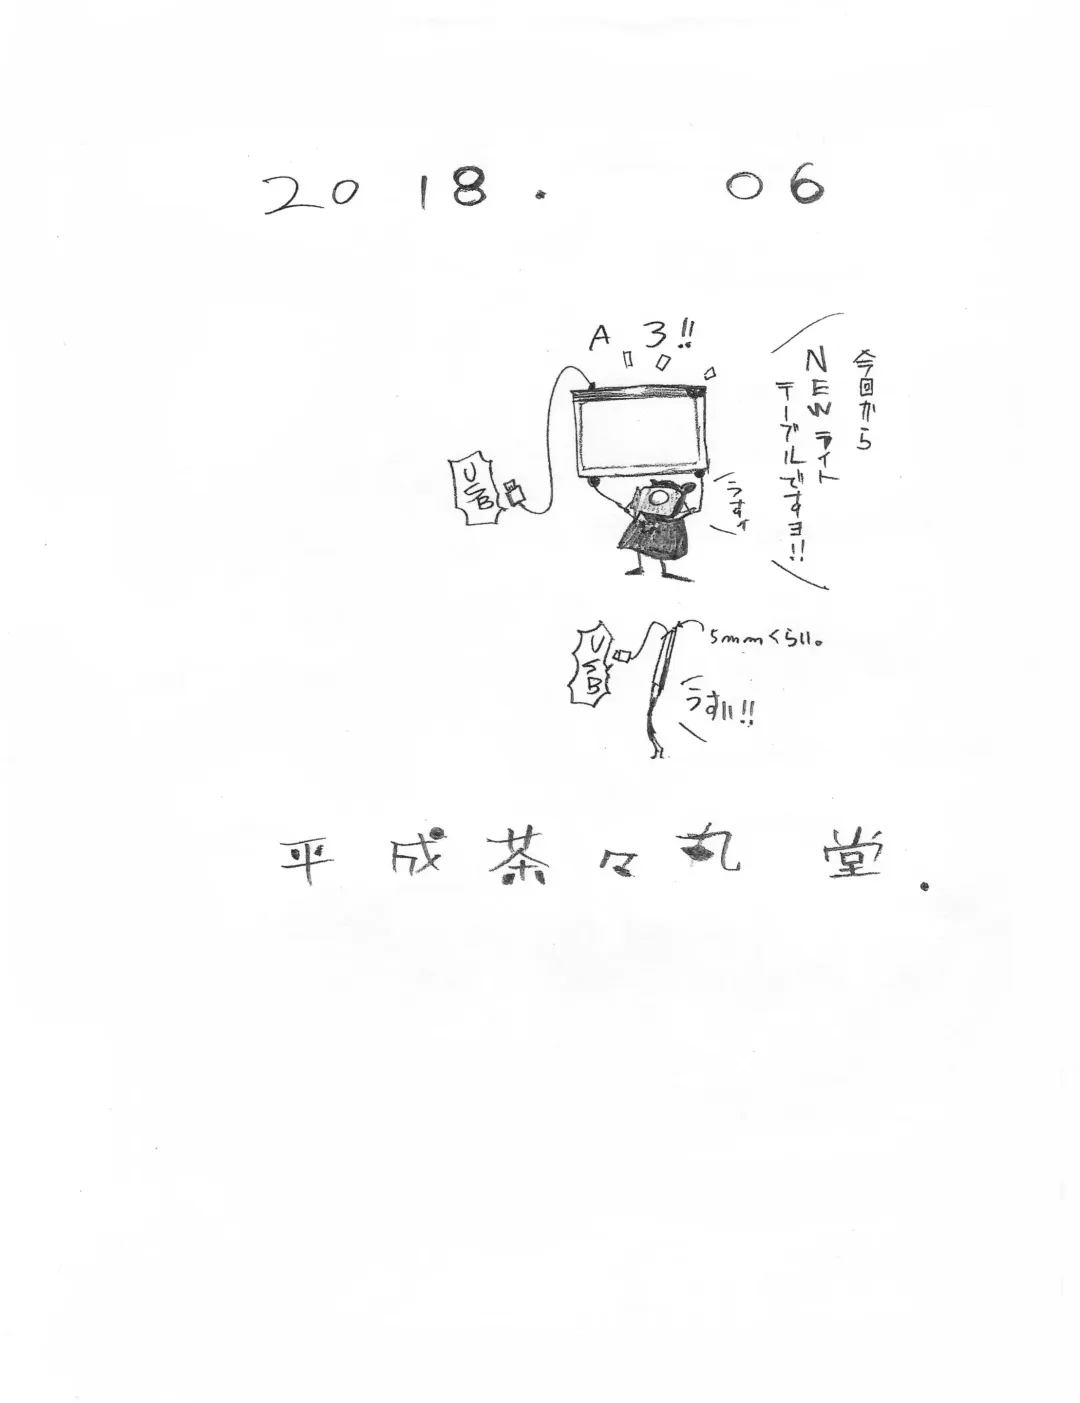 2018. 06
A3!!
今回から
NEWライト
テーブルですヨ!!
USB
うすィ
USB
5mmくらい。
うすい!!
平成茶々丸堂.